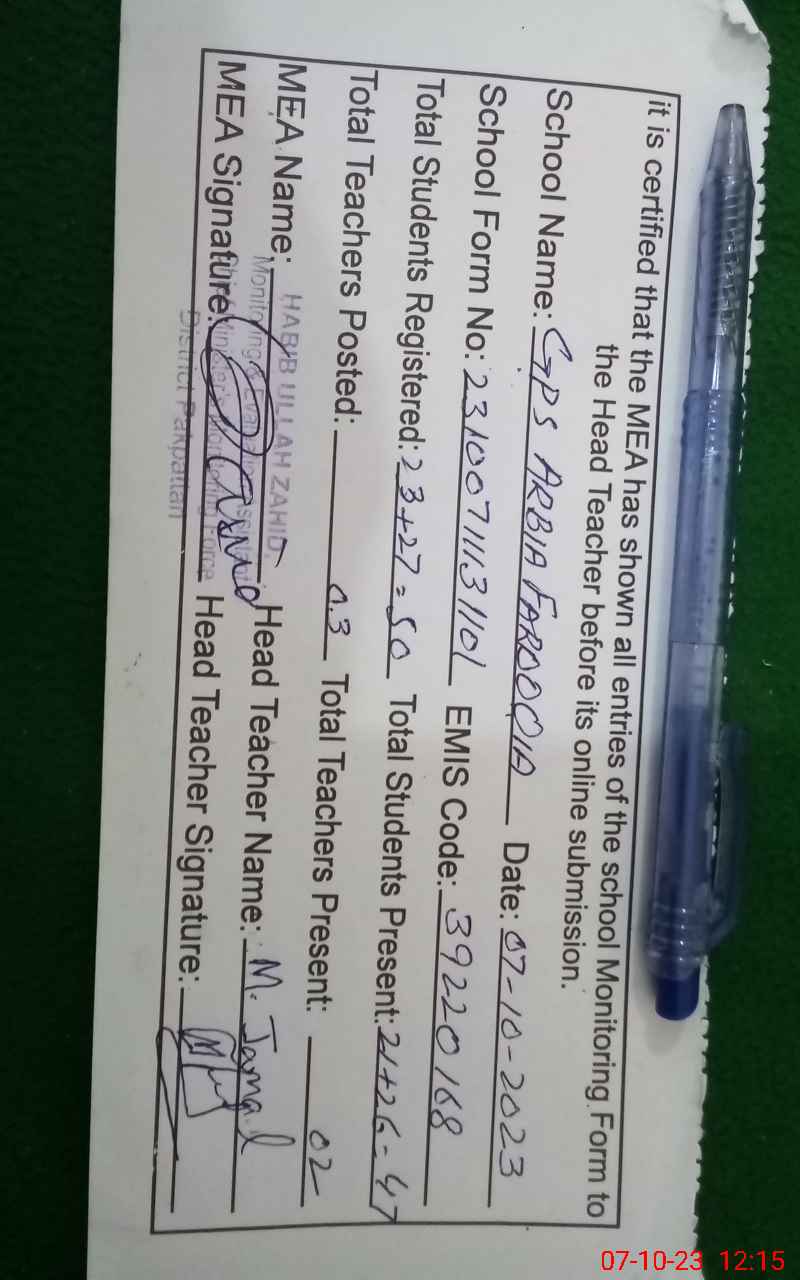 it is certified that the MEA has shown all entries of the school Monitoring Form to
the Head Teacher before its online submission.
School Name: GPS ARBIA FAROOQIA Date: 07-10-2023
School Form No: 23100711131101 EMIS Code: 39220168
Total Students Registered: 23+27=50 Total Students Present: 21+26=47
Total Teachers Posted: 03 Total Teachers Present: 02
HABIB ULLAH ZAHID
MEA Name: Head Teacher Name: M. Jamal
Monitoring & Evaluation
MEA Signature: Head Teacher Signature:
Chief Minister's Monitoring Force
District Pakpattan
07-10-23 12:15